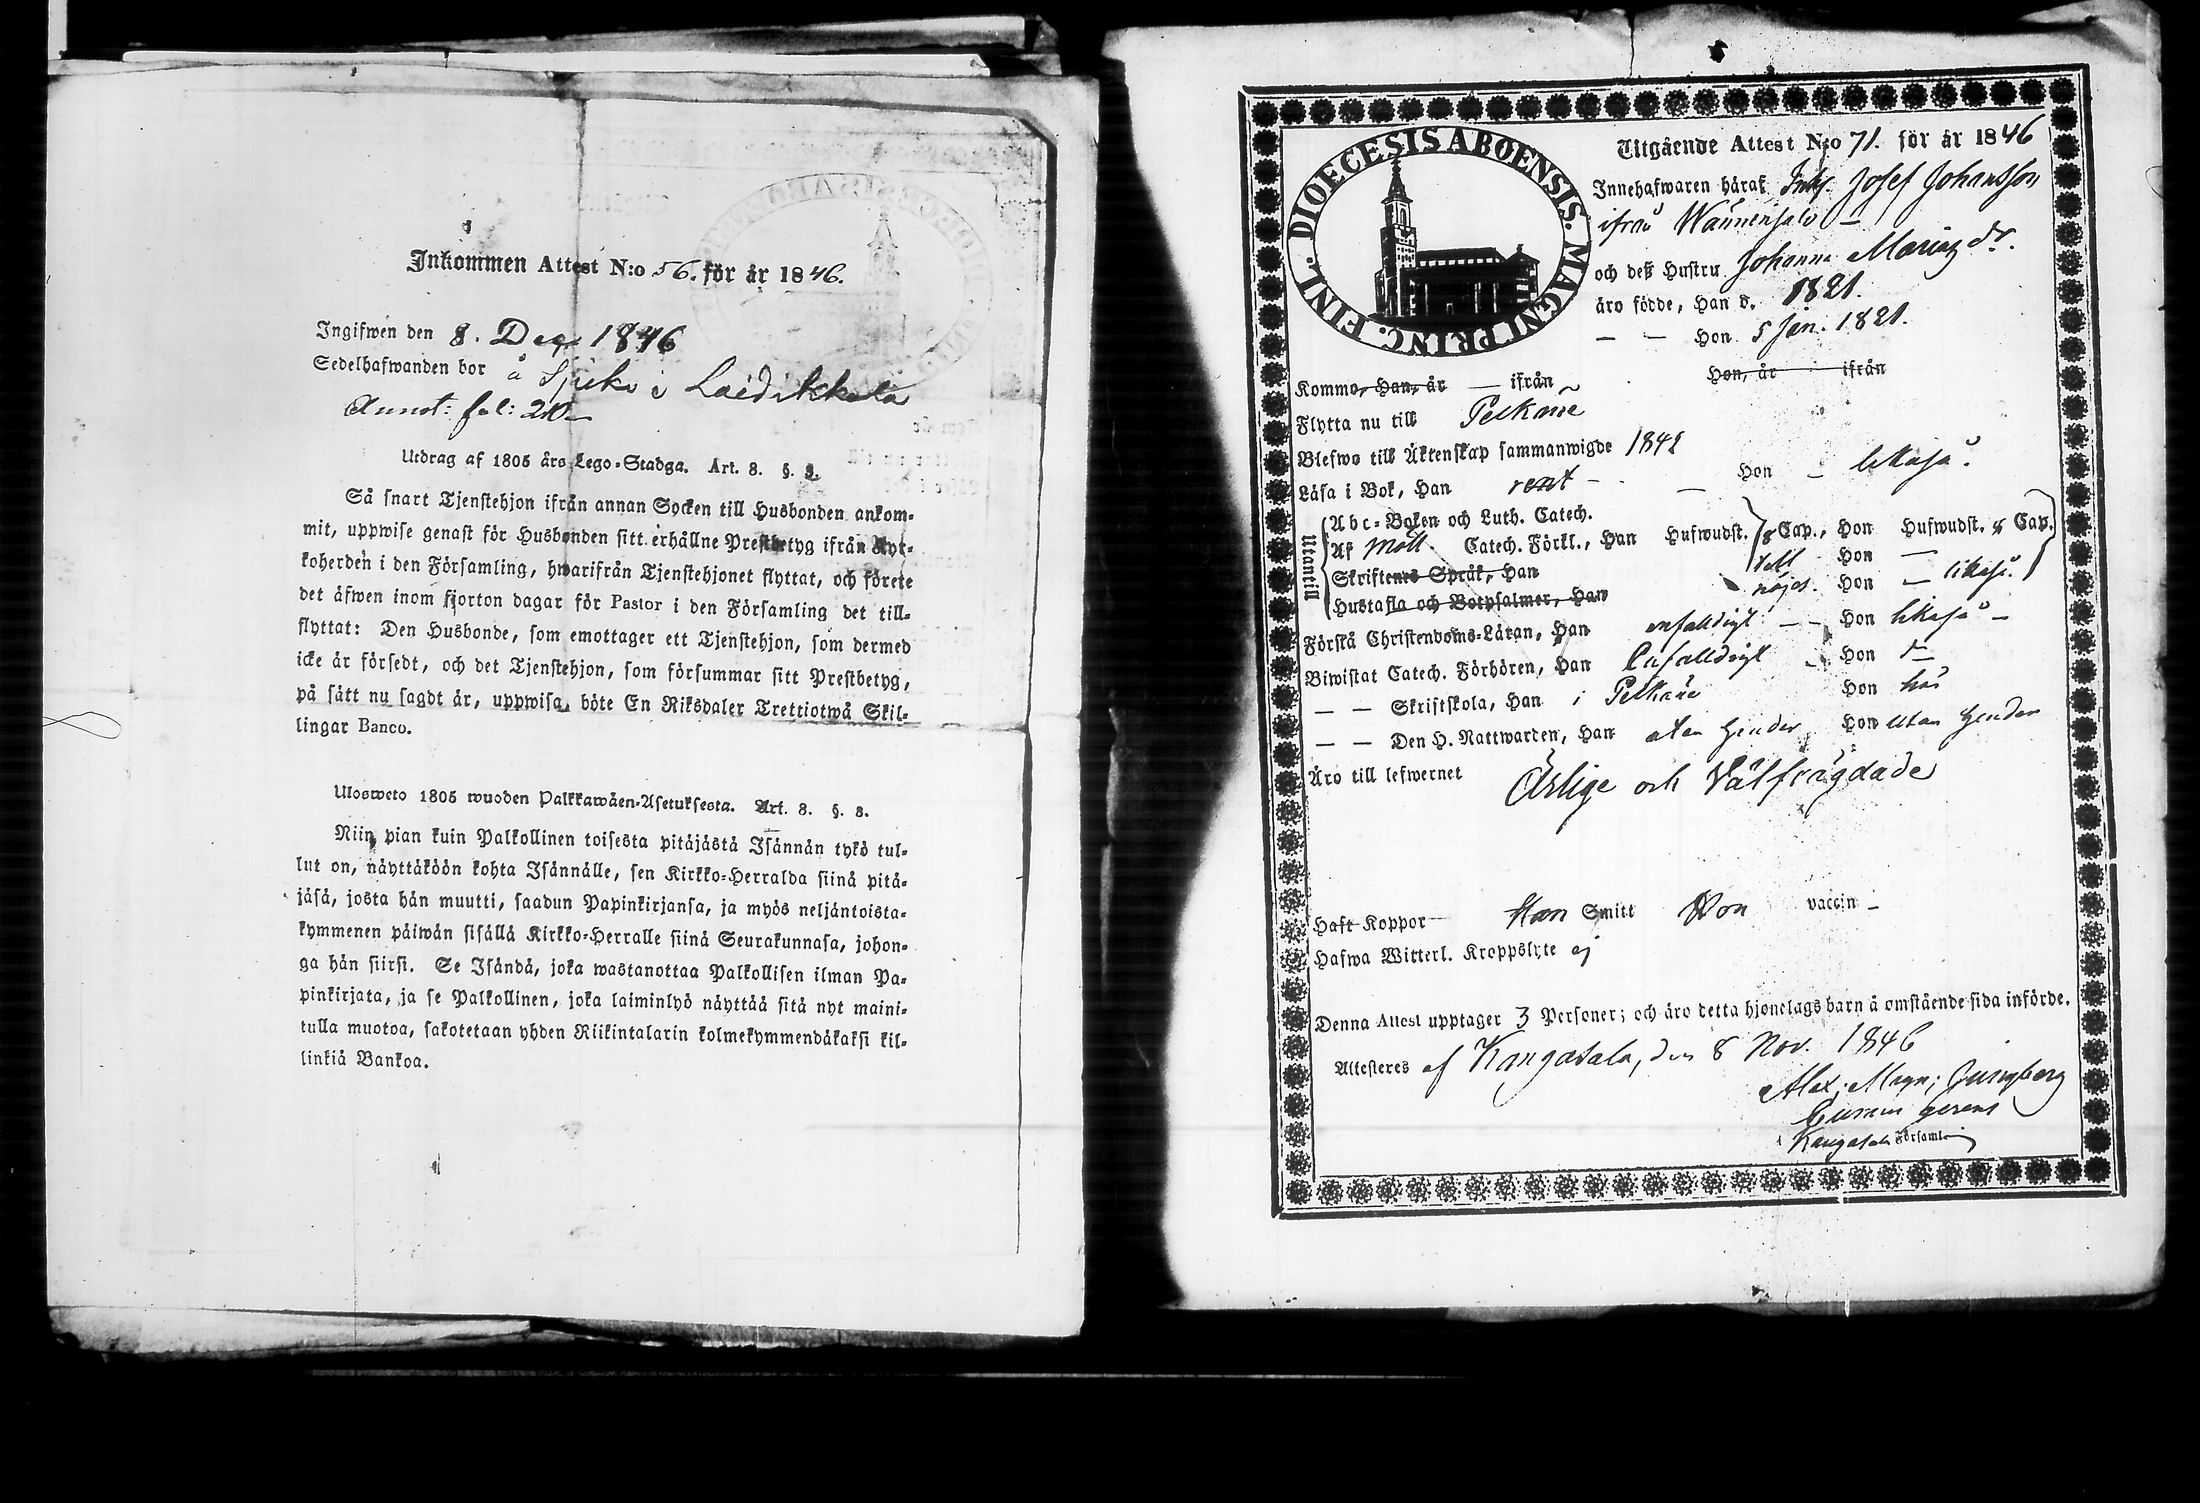 Inkommen Attest N:o 56. för år 1846.
Ingifwen den 8. Dec 1846
Sedelhafwanden bor å i Laidikkala
Annot: fol: 210
Utdrag af 1805 års Lego-Stadga. Art. 8. §. 3.
Så snart Tjenstehjon ifrån annan Socken till Husbonden ankom-
mit, uppwise genast för Husbonden sitt erhållne Prestbetyg ifrån Kyr-
koherden i den Församling, hwarifrån Tjenstehjonet flyttat, och förete
det äfwen inom fjorton dagar för Pastor i den Församling det till-
flyttat: Den Husbonde, som emottager ett Tjenstehjon, som dermed
icke är försedt, och det Tjenstehjon, som försummar sitt Prestbetyg,
på sätt nu sagdt är, uppwisa, böte En Riksdaler Trettiotwå Skil-
lingar Banco.
Ulosweto 1805 wuoden Palkkawäen-Asetuksesta. Art. 8. §. 3.
Niin pian kuin Palkollinen toisesta pitäjästä Isännän tykö tul-
lut on, näyttäköön kohta Isännälle, sen Kirkko-Herralda siinä pitä-
jäsä, josta hän muutti, saadun Papinkirjansa, ja myös neljäntoista-
kymmenen päiwän sisällä Kirkko-Herralle siinä Seurakunnasa, johon-
ga hän siirsi. Se Isändä, joka wastanottaa Palkollisen ilman Pa-
pinkirjata, ja se Palkollinen, joka laiminlyö näyttää sitä nyt maini-
tulla muotoa, sakotetaan yhden Riikintalarin kolmekymmendäkaksi kil-
linkiä Bankoa.
DIOECESIS ABOENSIS. MAGNI PRINC. FINL.
Utgående Attest N:o 71. för år 1846
Innehafwaren häraf Inh. Josef Johansson
ifrån Wannensalo –
och deß Hustru Johanna Mariæ dr.
äro födde, Han d. 1821.
— — Hon 5 Jan. 1821.
Kommo, Han, år — ifrån Hon, år ifrån
Flytta nu till Pelkäne
Blefwo till Äktenskap sammanwigde 1842
Läsa i Bok, Han rent – — Hon – likaså.
Utantill
Abc-Boken och Luth. Catech.
Af Catech. Förkl., Han Hufwudst. 8 Cap., Hon Hufwudst. 8 Cap.
Skriftenes Språk, Han Hon —
Hustafla och Botpsalmer, Han nöjd. Hon — likaså.
Förstå Christendoms-Läran, Han enfalldigt — Hon likaså –
Biwistat Catech. Förhören, Han Enfalldigt Hon d–
— — Skriftskola, Han i Pelkäne Hon här
— — Den H. Nattwarden, Han utan hinder Hon utan hinder
Äro till lefwernet Ärlige och Välfrägdade
Haft Koppor Han Smitt Hon vaccin –
Hafwa Witterl. Kroppslyte ej
Denna Attest upptager 3 Personer; och äro detta hjonelags barn å omstående sida införde.
Attesteres af Kangasala, den 8 Nov. 1846
Alex: Magn: Ljungberg
Curam gerens
Kangasala Församl.